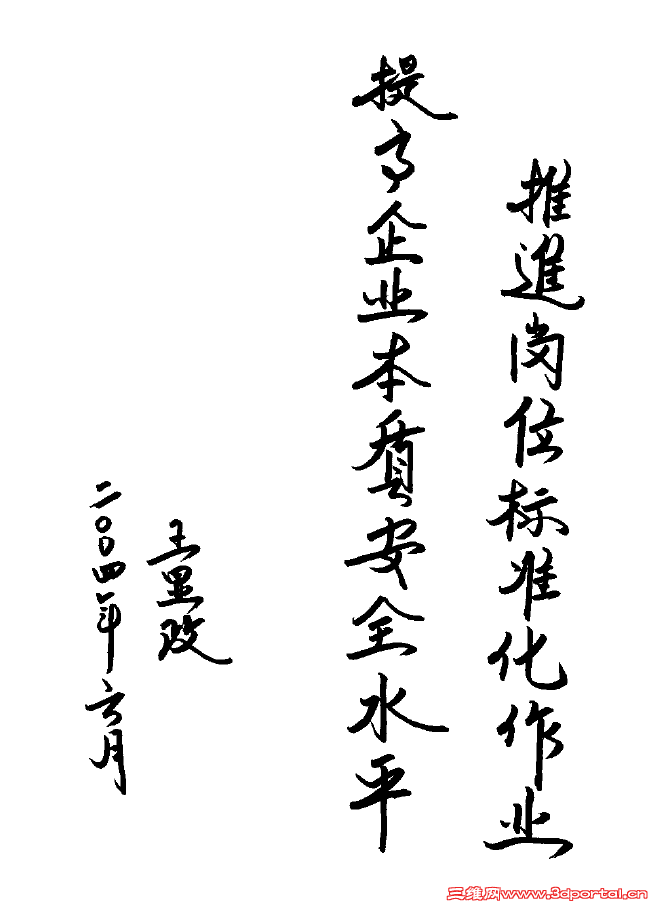 推進岗位标准化作业
提高企业本質安全水平
王显政
二〇〇四年六月
三维网www.3dportal.cn